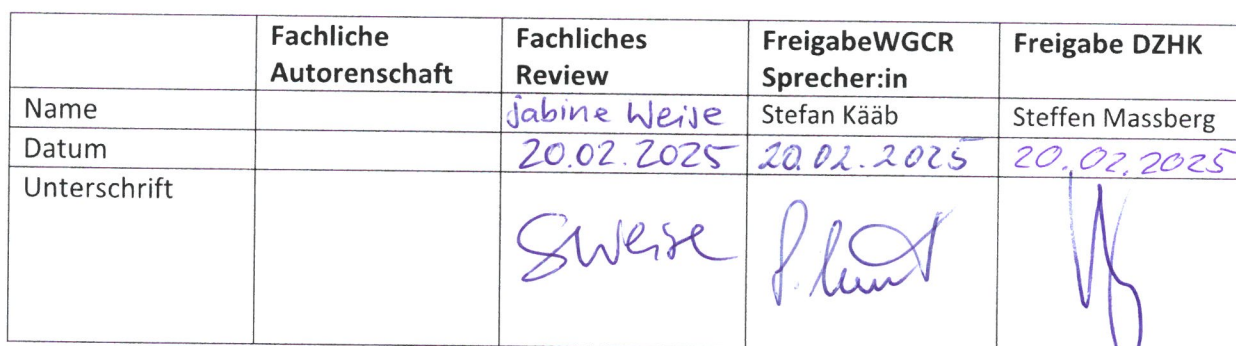 Fachliche Autorenschaft Fachliches Review FreigabeWGCR Sprecher:in Freigabe DZHK
Name Sabine Weise Stefan Kääb Steffen Massberg
Datum 20.02.2025 20.02.2025 20.02.2025
Unterschrift SWeise